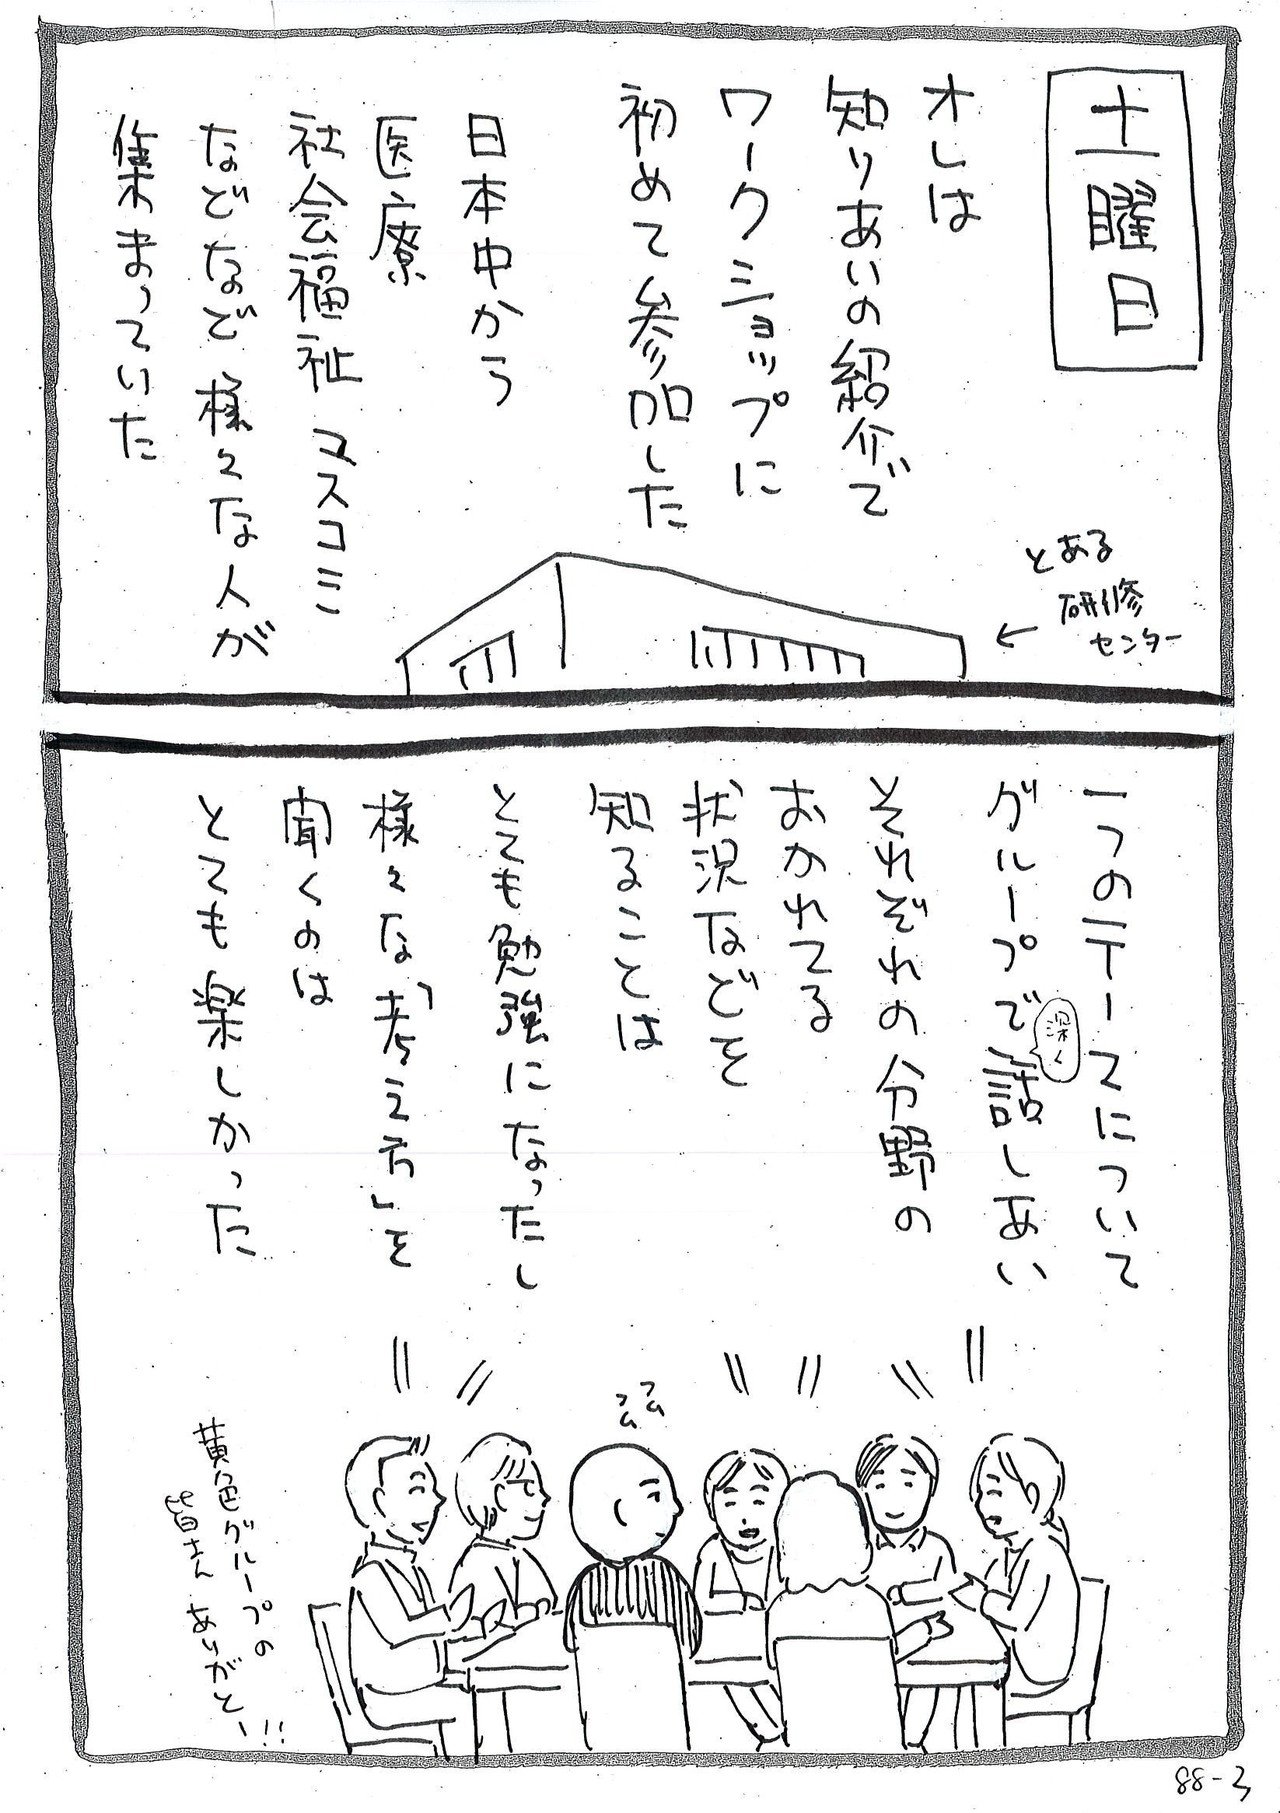 土曜日
オレは
知りあいの紹介で
ワークショップに
初めて参加した
日本中から
医療
社会福祉 マスコミ
などなど 様々な人が
集まっていた
とある
研修
センター
一つのテーマについて
グループで話しあい
深く
それぞれの分野の
おかれてる
状況などを
知ることは
とても勉強になったし
様々な「考え方」を
聞くのは
とても楽しかった
フム
フム
黄色グループの
皆さん ありがとー!!
88-3